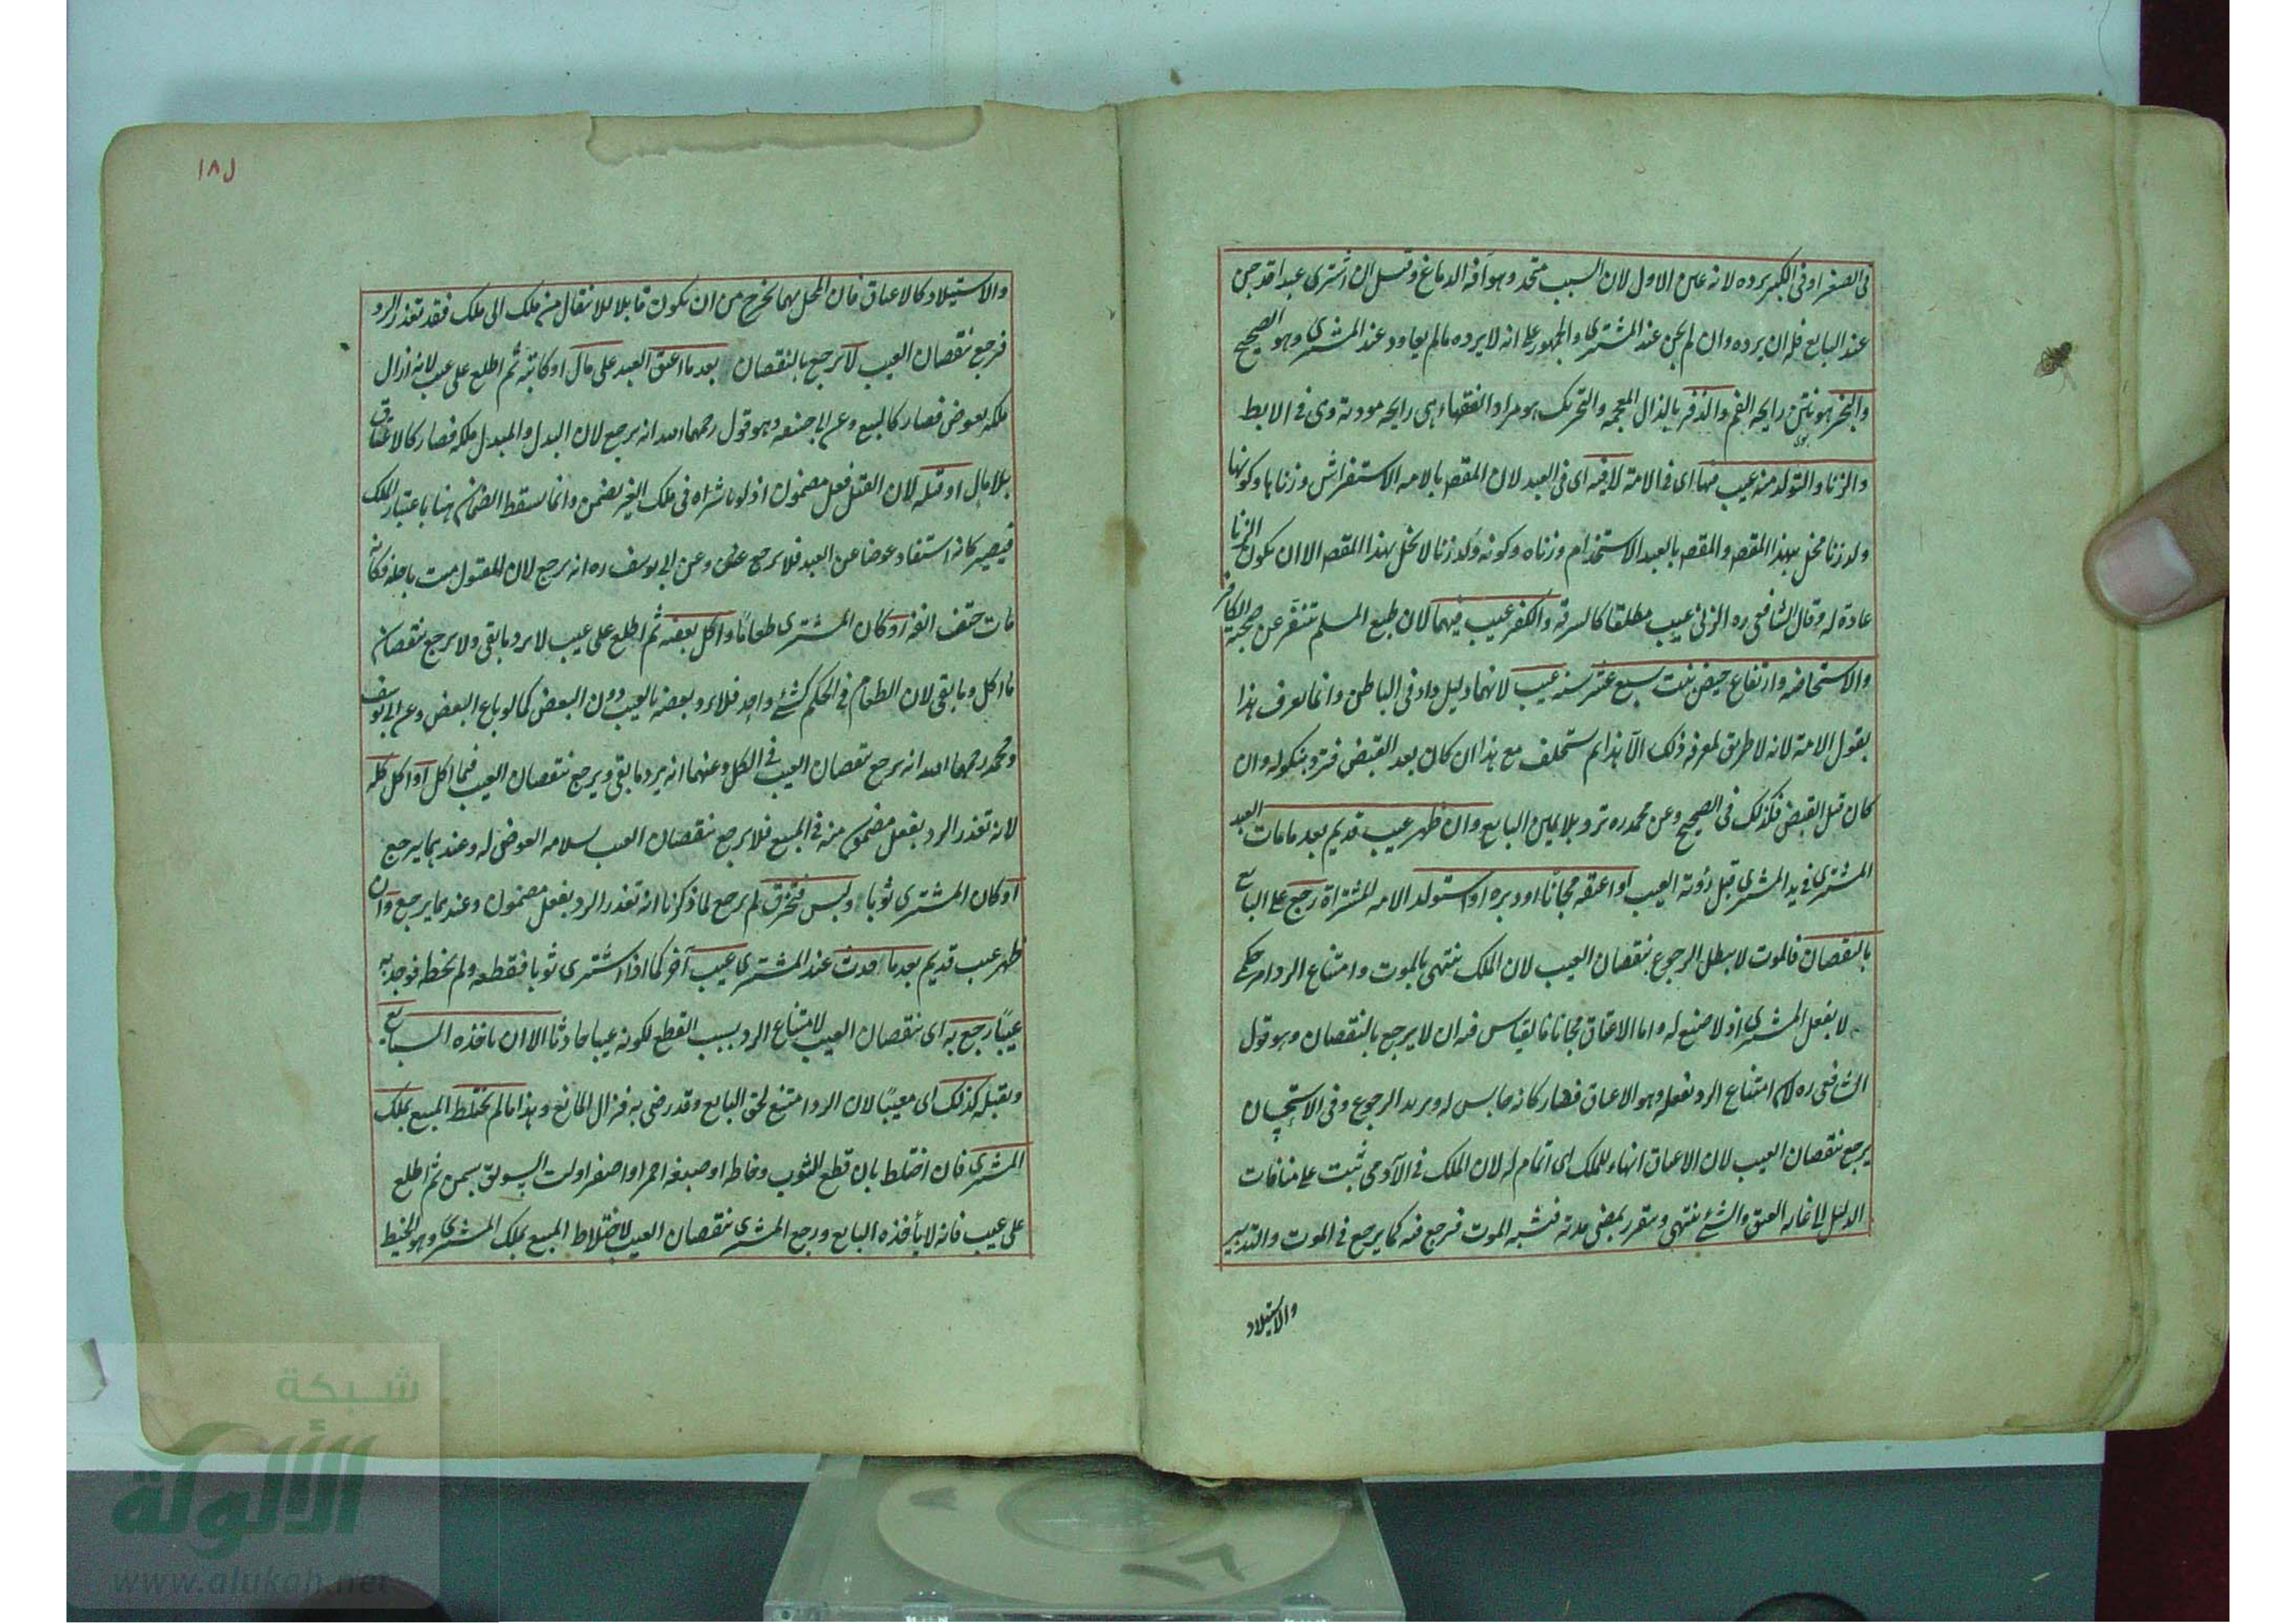 فى الصغر او فى الكبر يرده لانه عين الاول لان السبب متحد وهو آفة الدماغ وقيل ان اشترى عبدا قد جن
عند البايع فله ان يرده وان لم يجن عند المشترى والجمهور على انه لا يرده مالم يعاود عند المشترى وهو الصحيح
والبخر هو نتن رايحة الفم والذفر بالذال المعجمة والتحريك هو مراد الفقهاء هى رايحة موذية وى فى الابط
والزنا والتولد منه عيب فيها اى فى الامة لا فيه اى فى العبد لان المقصـ بالامة الاستفراش وزناها وكونها
ولد زنا مخل بهذا المقصـ والمقصـ بالعبد الاستخدام وزناه وكونه ولد زنا لا يخل بهذا المقصـ الا ان يكون الزنا
عادة له وقال الشافعى ره الزنى عيب مطلقا كالسرقة والكفر عيب فيهما لان طبع المسلم تنفر عن صحبة الكافر
والاستحاضة وارتفاع حيض بنت سبع عشر سنة عيب لانهما دليل داء فى الباطن وانما يعرف هذا
بقول الامة لانه لا طريق لمعرفة ذلك الا هذا ثم يستحلف مع هذا ان كان بعد القبض فترد بنكوله وان
كان قبل القبض فكذلك فى الصحيح وعن محمد ره ترد بلا يمين البايع وان ظهر عيب قديم بعد مامات العبد
المشترى فى يد المشترى قبل رؤية العيب او اعتقه مجانا او دبره او استولد الامة المشتراة رجع على البايع
بالنقصان فالموت لا يبطل الرجوع بنقصان العيب لان الملك ينتهى بالموت وامتناع الرد امر حكمى
لا بفعل المشترى اذ لا صنع له واما الاعتاق مجانا فالقياس فيه ان لا يرجع بالنقصان وهو قول
الشافعى ره لان امتناع الرد بفعله وهو الاعتاق فصار كانه حابس له ويريد الرجوع وفى الاستحسان
يرجع بنقصان العيب لان الاعتاق انهاء للملك اى اتمام له لان الملك فى الآدمى ثبت على منافات
الدليل الى غاية العتق والشئ ينتهى ويتقرر بمضى مدته فيشبه الموت فيرجع فيه كما يرجع فى الموت والتدبير
والاستيلاد
١٨٥
والاستيلاد كالاعتاق فان المحل بهما يخرج من ان يكون قابلا للانتقال من ملك الى ملك فقد تعذر الرد
فرجع بنقصان العيب لا يرجع بالنقصان بعد ما اعتق العبد على مال او كاتبه ثم اطلع على عيب لانه ازال
ملكه بعوض فصار كالبيع وعن ابى حنيفة وهو قول رحمهما الله انه يرجع لان البدل والمبدل ملكه فصار كالاعتاق
بلا مال او قتله لان القتل فعل مضمون اذ لو باشراه فى ملك الغير يضمن وانما يسقط الضمان هنا باعتبار الملك
فيصير كانه استفاد عوضا عن العبد فلا يرجع وعن ابى يوسف ره انه يرجع لان المقتول ميت باجله فكانه
مات حتف انفه او كان المشترى طعاما واكل بعضه ثم اطلع على عيب لا يرد ما بقى ولا يرجع بنقصان
ما اكل وما بقى لان الطعام فى الحكم كشئ واحد فلا يرد بعضه بالعيب دون البعض كما لو باع البعض وعن ابى يوسف
ومحمد رحمهما الله انه يرجع بنقصان العيب فى الكل وعنهما انه يرد ما بقى ويرجع بنقصان العيب فيما اكل او اكل كله
لانه تعذر الرد بفعل مضمون منه فى المبيع فلا يرجع بنقصان العيب لسلامة العوض له وعندهما يرجع
او كان المشترى ثوبا ولبس فتخرق لم يرجع لما ذكرنا انه تعذر الرد بفعل مضمون وعندهما يرجع وان
ظهر عيب قديم بعد ما حدث عند المشترى عيب آخر كما اذا اشترى ثوبا فقطعه ولم يخطه فوجد به
عيبا رجع به اى بنقصان العيب لامتناع الرد بسبب القطع لكونه عيبا حادثا الا ان ياخذه البايع
ويقبله كذلك اى معيبا لان الرد امتنع لحق البايع وقد رضى به فزال المانع وهذا مالم يختلط المبيع بملك
المشترى فان اختلط بان قطع الثوب وخاطه او صبغه احمر او اصفر او لت السويق بسمن ثم اطلع
على عيب فانه لا يأخذه البايع ورجع المشترى بنقصان العيب لاختلاط المبيع بملك المشترى وهو الخيط
شبكة
الألوكة
www.alukah.net